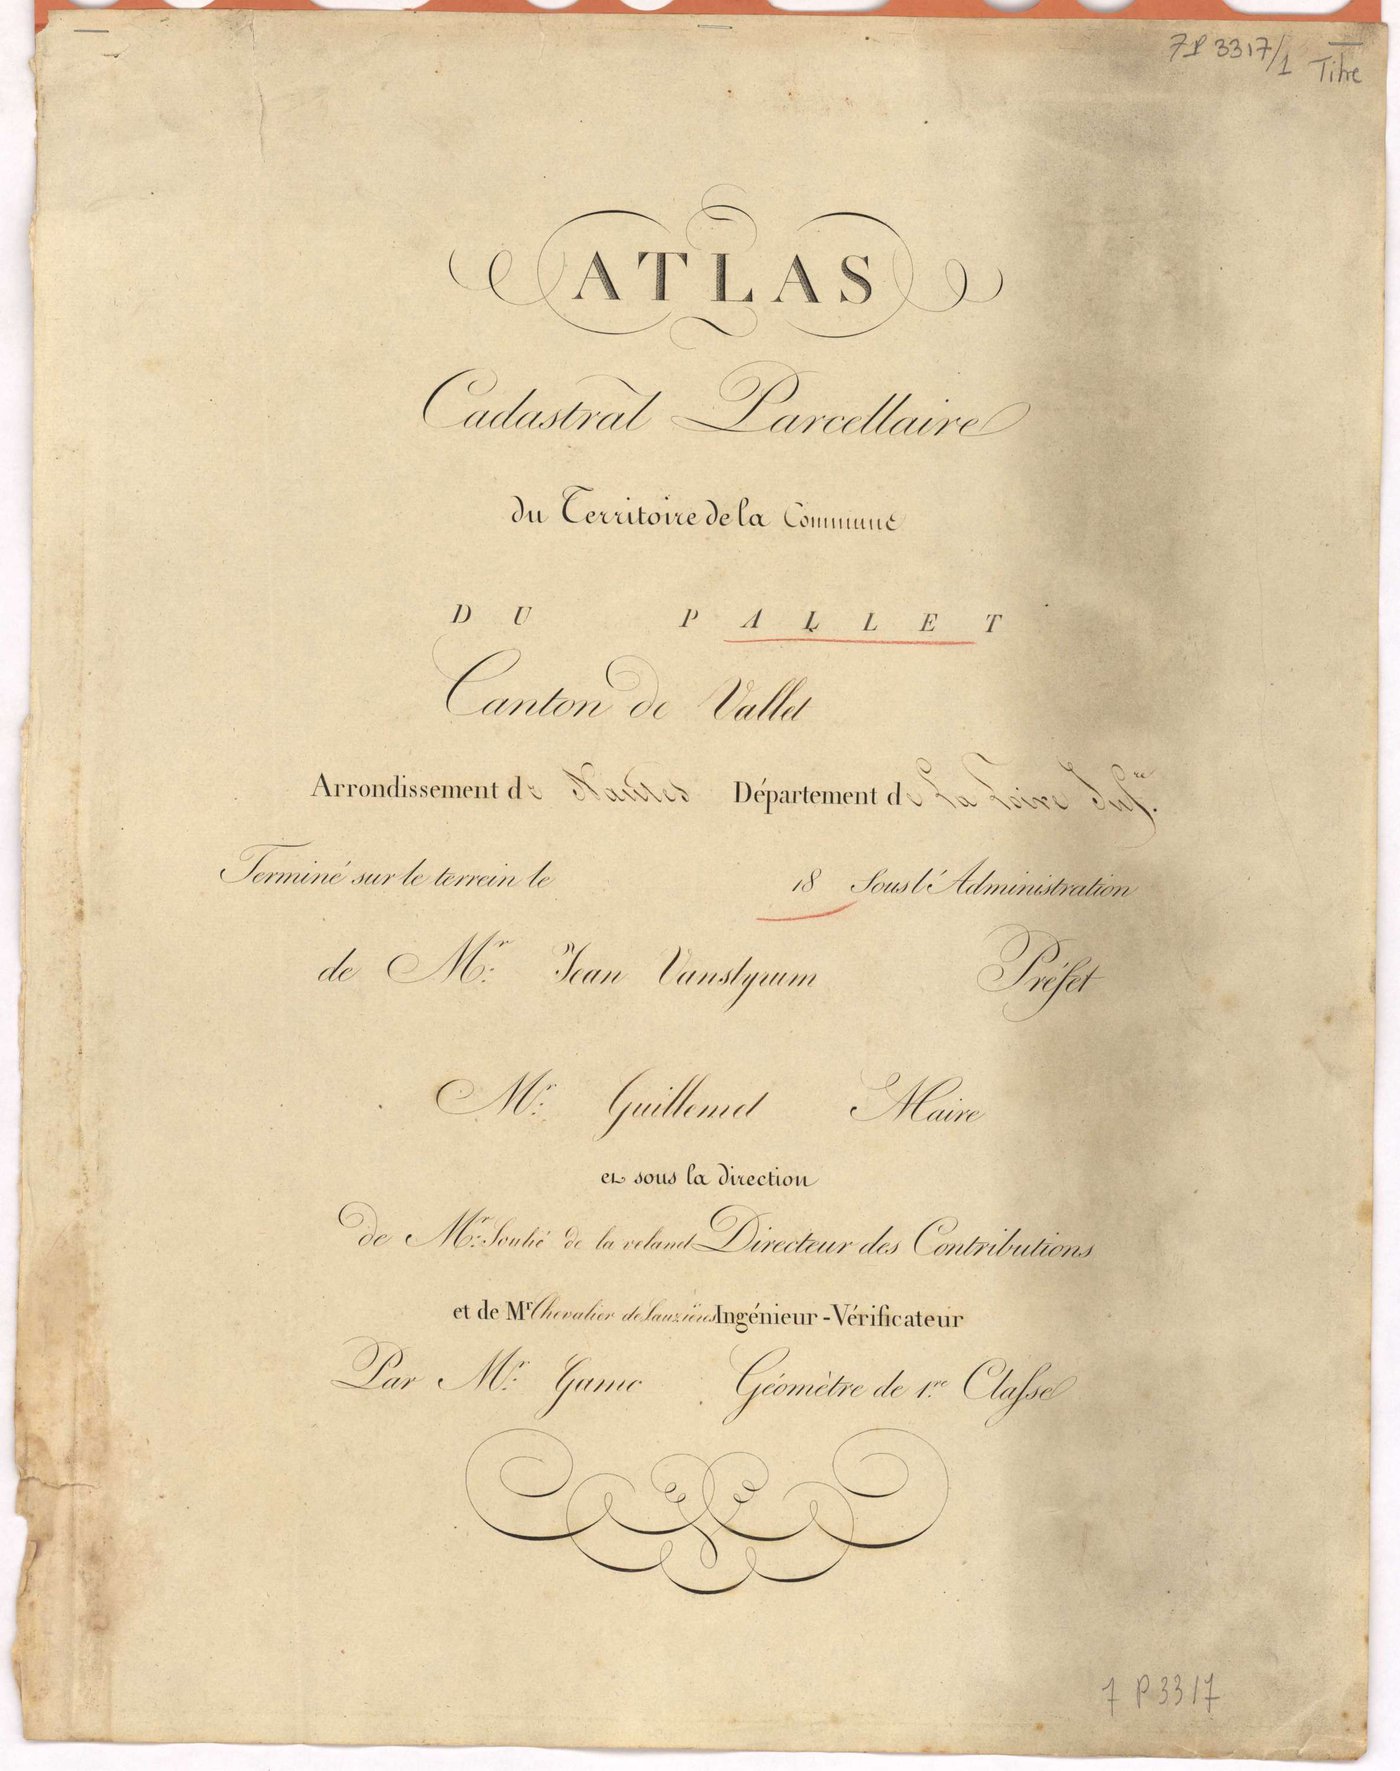 7P 3317/1 Titre
ATLAS
Cadastral Parcellaire
du Territoire de la Commune
DU PALLET
Canton de Vallet
Arrondissement de Nantes Département de La Loire Infre.
Terminé sur le terrein le 18 Sous l'Administration
de Mr. Jean Vanstyrum Préfet
Mr. Guillemet Maire
et sous la direction
de Mr. Soulié de la veland Directeur des Contributions
et de Mr Chevalier de Sauzières Ingénieur-Vérificateur
Par Mr. Gamo Géomètre de 1re. Classe
7 P 3317